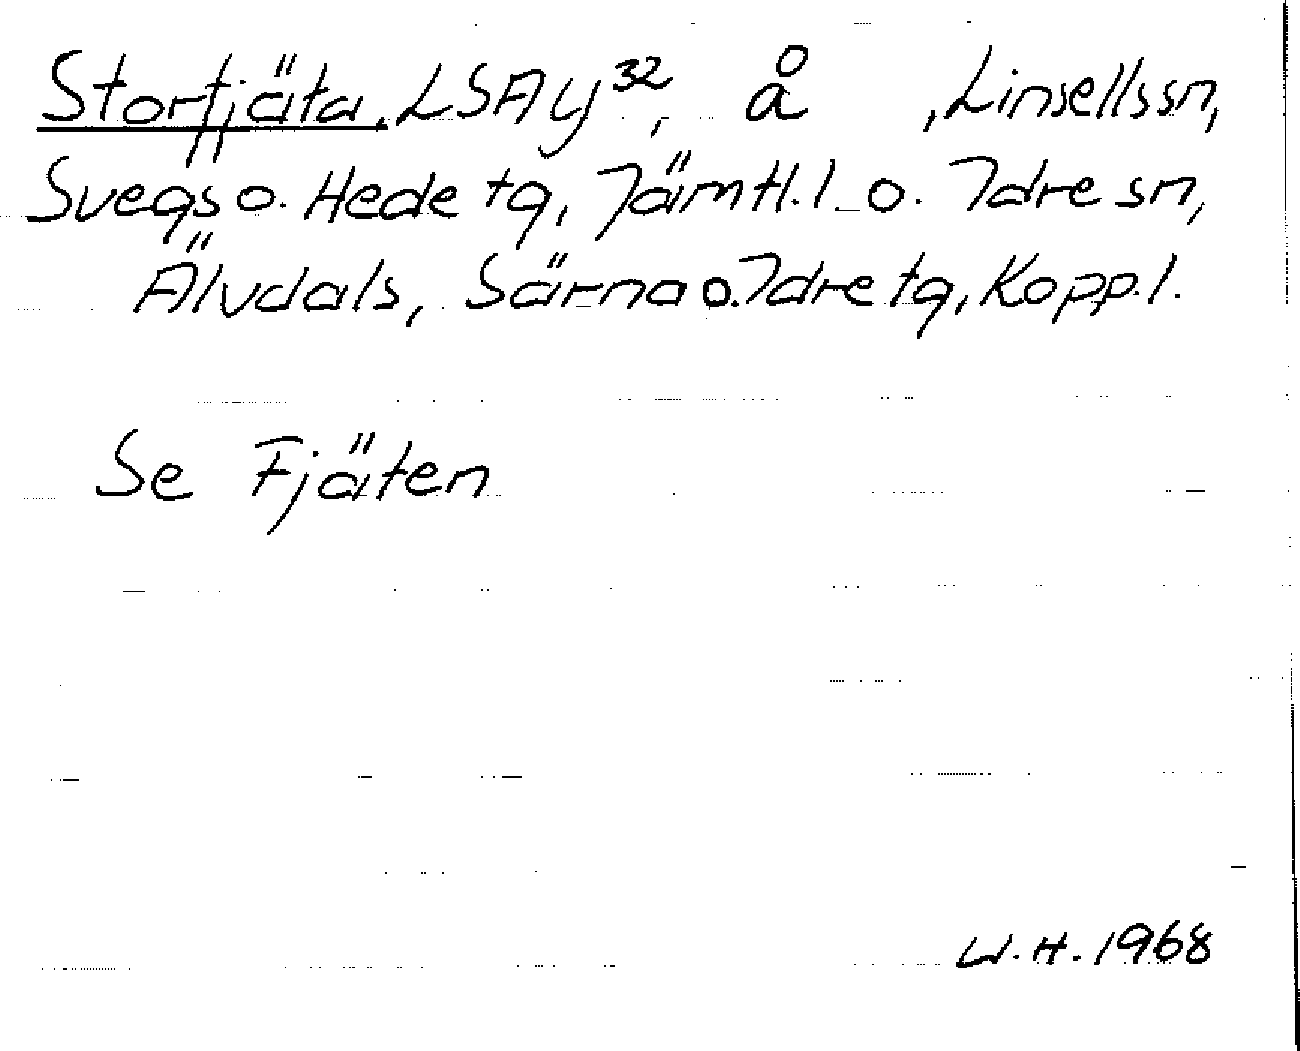 Storfjäta, LSAy³², å , Linsells sn,
Svegs o. Hede tg, Jämtl. l. o. Idre sn,
Älvdals, Särna o. Idre tg, Kopp. l.
Se Fjäten
W. H. 1968